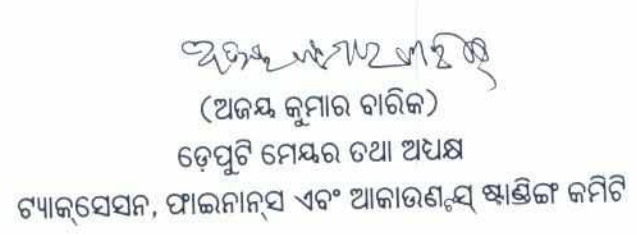 (ଅଜୟ କୁମାର ବାରିକ)
ଡେ଼ପୁଟି ମେୟର ତଥା ଅଧ୍ୟକ୍ଷ
ଟ୍ୟାକ୍‌ସେସନ, ଫାଇନାନ୍‌ସ ଏବଂ ଆକାଉଣ୍ଟସ୍ ଷ୍ଟାଣ୍ଡିଙ୍ଗ କମିଟି